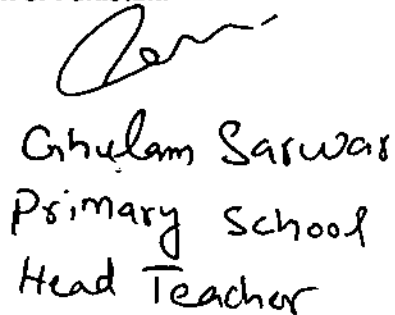 Ghulam Sarwar
Primary School
Head Teacher